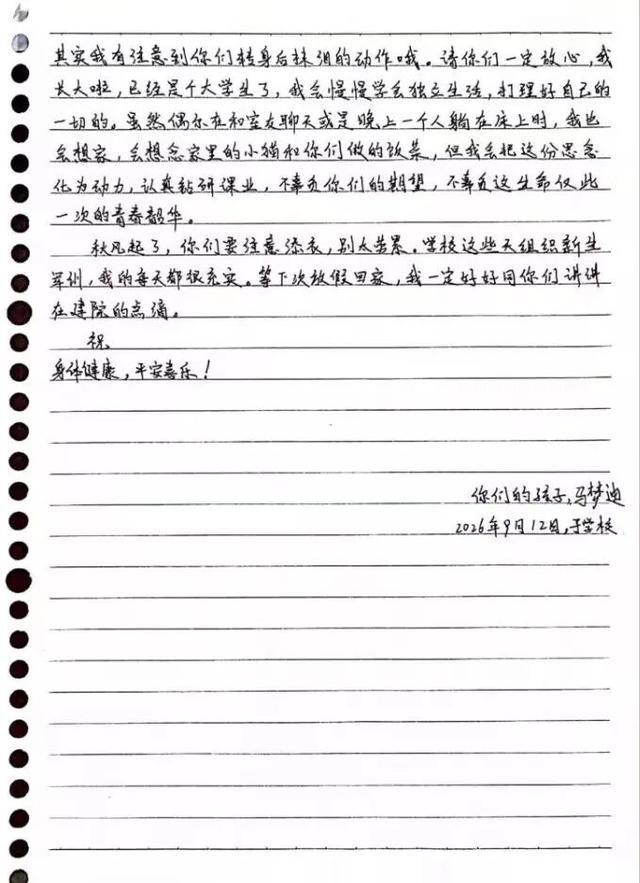 其实我有注意到你们转身后抹泪的动作哦。请你们一定放心，我
长大啦，已经是个大学生了，我会慢慢学会独立生活，打理好自己的
一切的。虽然偶尔在和室友聊天或是晚上一个人躺在床上时，我也
会想家，会想念家里的小猫和你们做的饭菜，但我会把这份思念
化为动力，认真钻研课业，不辜负你们的期望，不辜负这生命仅此
一次的青春韶华。
秋风起了，你们要注意添衣，别太劳累。学校这些天组织新生
军训，我的每天都很充实。等下次放假回家，我一定好好同你们讲讲
在建院的点滴。
祝
身体健康，平安喜乐！
你们的孩子，马梦迪
2026年9月12日，于学校